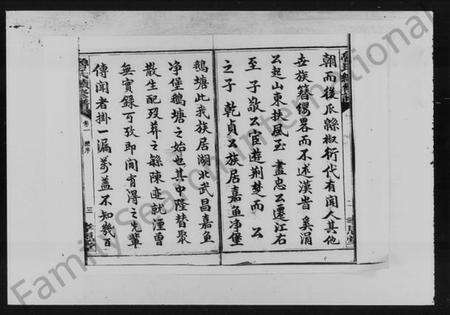 朝而後瓜緜椒衍代有聞人其他
安族簪纓畧而不述漢晉奚涓
公起山東扶風玉 盡忠公遷江右
至 子敬公宦遊荆楚而 公
之子 乾貞公族居嘉魚净堡
鵝塘此我族居湖北武昌嘉魚
净堡鵝塘之始也其中隆替聚
散生配歿葬之繇陳迹就湮曾
無實錄可攷即間有得之先輩
傳聞者掛一漏萬蓋不知幾百
卷一
三
FamilySearch International